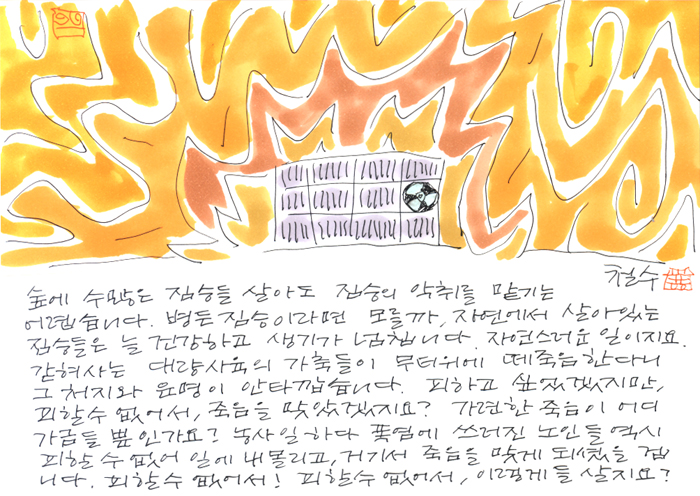 철수
숲에 수많은 짐승들 살아도 짐승의 악취를 맡기는
어렵습니다. 병든 짐승이라면 모를까, 자연에서 살아있는
짐승들은 늘 건강하고 생기가 넘칩니다. 자연스러운 일이지요.
갇혀사는 대량사육의 가축들이 무더위에 떼죽음한다니
그 처지와 운명이 안타깝습니다. 피하고 싶었겠지만,
피할수 없어서, 죽음을 맞았겠지요? 가련한 죽음이 어디
가금들 뿐인가요? 농사일하다 폭염에 쓰러진 노인들 역시
피할 수 없어 일에 내몰리고, 거기서 죽음을 맞게 되셨을 겁
니다. 피할수 없어서! 피할수 없어서, 이렇게들 살지요?